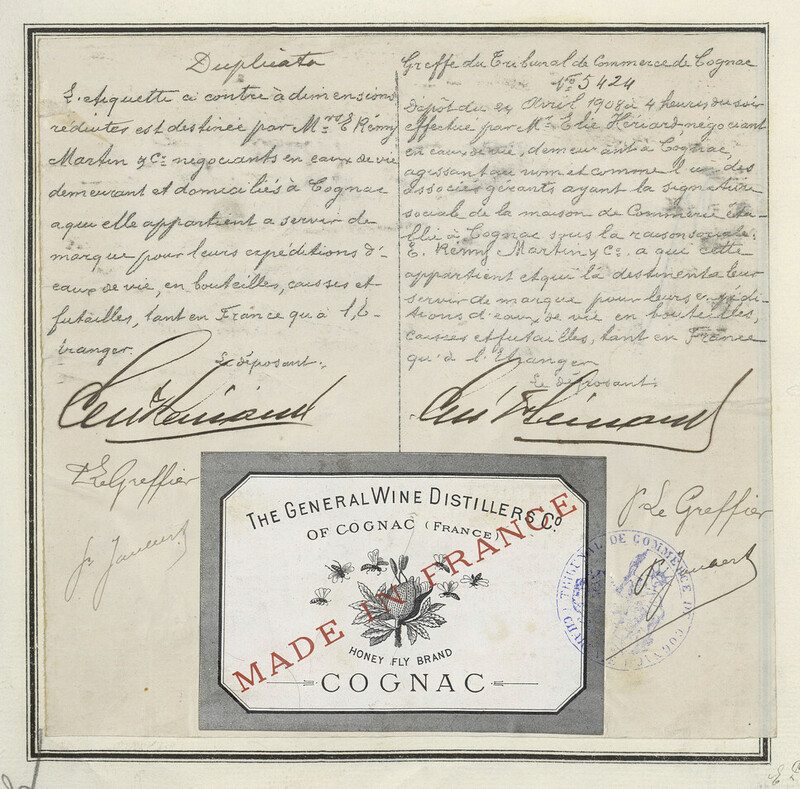 Duplicata
L'etiquette ci contre à dimensions
réduites est destinée par Mrs E. Rémy
Martin y Co négociants en eaux de vie
demeurant et domiciliés à Cognac
a qui elle appartient a servir de
marque pour leurs expéditions d'
eaux de vie, en bouteilles, caisses et
futailles, tant en France qu'à l'E-
tranger.
Le déposant:
P. Le Greffier
Greffe du Tribunal de Commerce de Cognac
No 5424
Dépôt du 24 Avril 1908 à 4 heures du soir
effectué par Mr Elie Hériard, négociant
en eaux de vie, demeurant à Cognac,
agissant au nom et comme l'un des
associés gérants ayant la signature
sociale de la maison de Commerce éta-
blie à Cognac sous la raison sociale:
E. Rémy Martin y Co. a qui cette
appartient et qui la destinent a leur
servir de marque pour leurs expédi-
tions d'eaux de vie en bouteilles,
caisses et futailles, tant en France
qu'à l'Etranger
Le déposant:
P. Le Greffier
THE GENERAL WINE DISTILLERS Co.
OF COGNAC (FRANCE)
MADE IN FRANCE
HONEY FLY BRAND
COGNAC
TRIBUNAL DE COMMERCE DE COGNAC